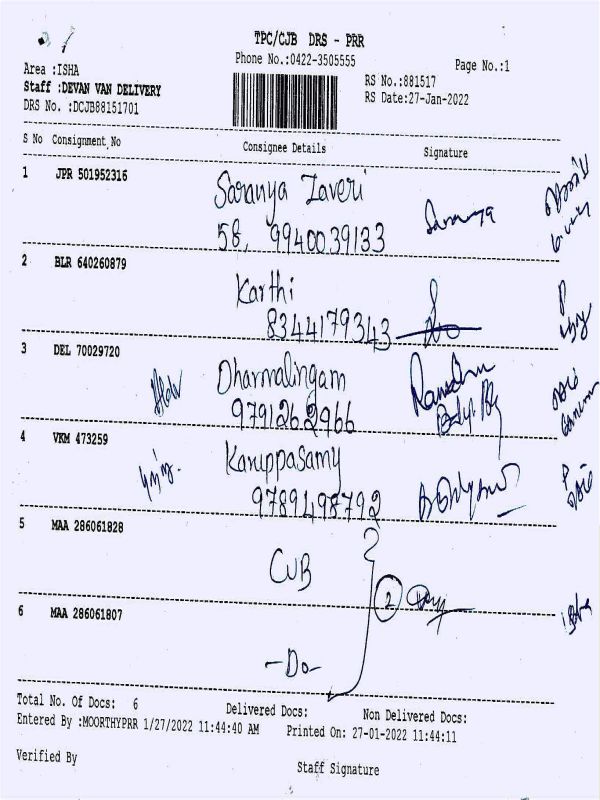 TPC/CJB DRS - PRR
Phone No.:0422-3505555
Page No.:1
Area :ISHA
Staff :DEVAN VAN DELIVERY
DRS No. :DCJB88151701
RS No.:881517
RS Date:27-Jan-2022
S No Consignment No Consignee Details Signature
1 JPR 501952316
Saranya Zaveri
58, 9940039133
Saranya
2 BLR 640260879
Karthi
8344179343
3 DEL 70029720
Dharmalingam
9791262966
4 VKM 473259
Karuppasamy
9789498792
5 MAA 286061828
CUB
2
6 MAA 286061807
-Do-
Total No. Of Docs: 6 Delivered Docs: Non Delivered Docs:
Entered By :MOORTHYPRR 1/27/2022 11:44:40 AM Printed On: 27-01-2022 11:44:11
Verified By
Staff Signature